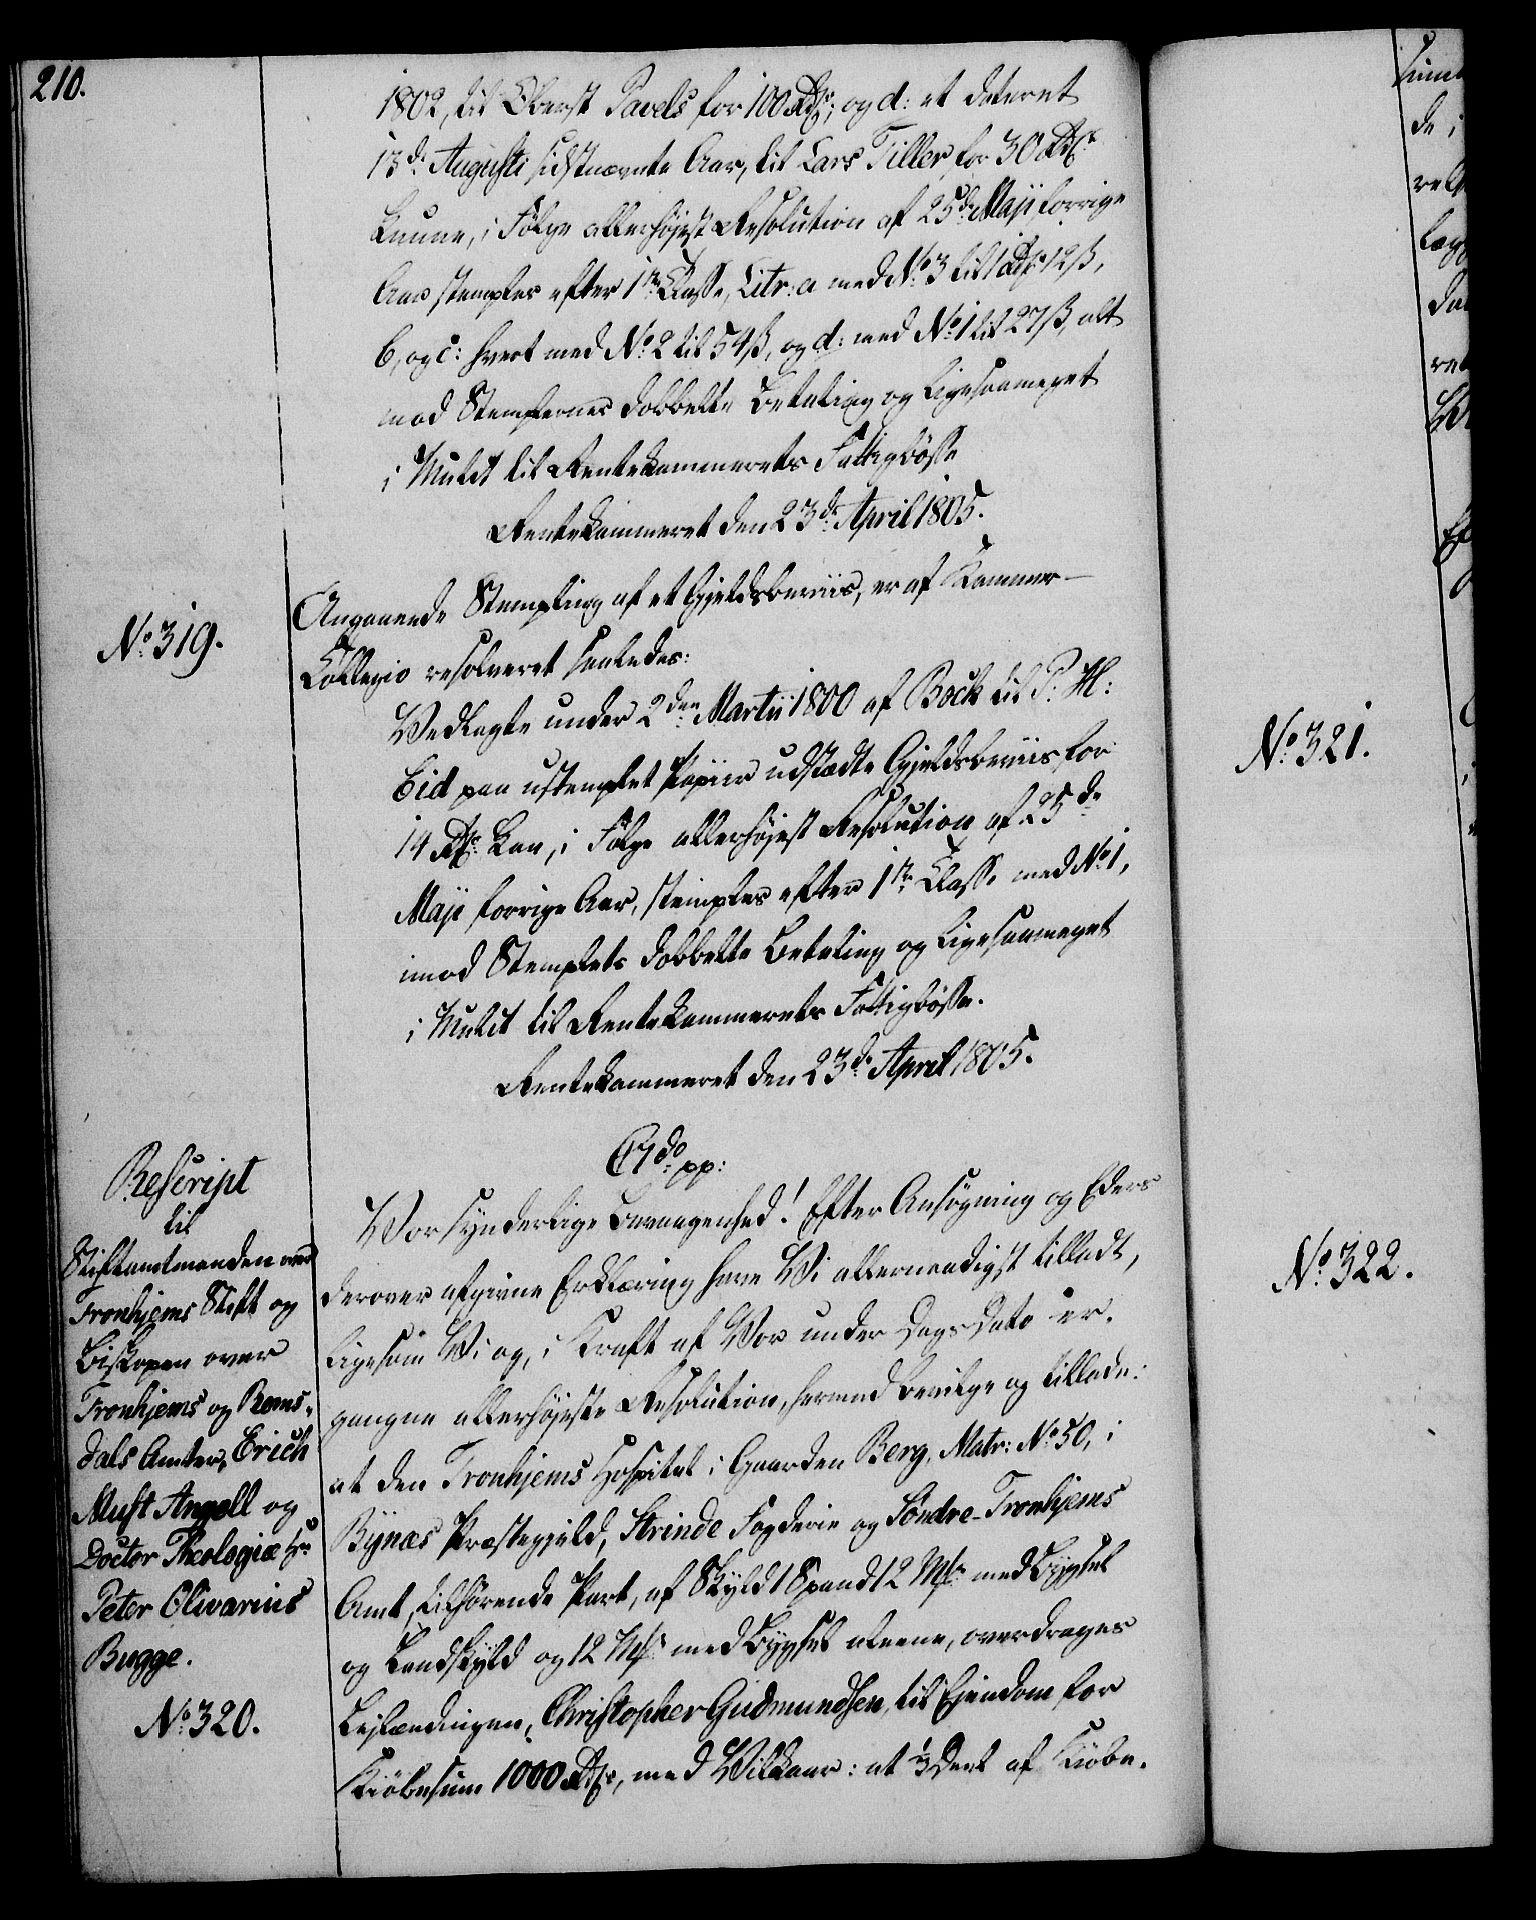 210.
1802, til Oberst Pavels for 100 Rdr; og d: et dateret
13de Augusti sidstnævnte Aar, til Lars Tiller for 30 Rdr
kunne, i Følge allerhøjest Resolution af 25de Maji forrige
Aar stemples efter 1ste Classe, Litr: a med No 3 til 1 Rdr 12 ß,
b, og c: hvert med No 2 til 54 ß, og d: med No 1 til 27 ß, alt
mod Stemplernes dobbelte Betaling og ligesaameget
i Mulct til Rentekammerets Fattigbøsse
Rentekammeret den 23de April 1805.
No 319.
Angaaende Stempling af et Gjeldsbeviis, er af Kammer-
Collegio resolveret saaledes:
Vedlagte under 2den Martii 1800 af Bock til P: H:
Eid paa ustemplet Papiir udstædte Gjeldsbeviis for
14 Rdr kan, i Følge allerhøjest Resolution af 25de
Maji forrige Aar, stemples efter 1ste Classe med No 1,
imod Stemplets dobbelte Betaling og ligesaameget
i Mulct til Rentekammerets Fattigbøsse.
Rentekammeret den 23de April 1805.
Rescript
til
Stiftamtmanden over
Tronhjems Stift og
Biskopen over
Tronhjems og Roms-
dals Amter, Erich
Must Angell og
Doctor Theologiæ Hr
Peter Olivarius
Bugge.
No 320.
C7do pp:
Vor synderlige Bevaagenhed! Efter Ansøgning og Eders
derover afgivne Erklæring have Vi allernaadigst tilladt,
ligesom Vi og, i Kraft af Vor under Dags Dato er-
gangne allerhøjeste Resolution, hermed bevilge og tillade:
at den Tronhjems Hospital i Gaarden Berg, Matr: No 50, i
Bynæs Præstegjeld, Strinde Fogderie og Søndre-Tronhjems
Amt, tilhørende Part, af Skyld 1 Spand 12 Mk med Bygsel
og Landskyld og 12 Mk med Bygsel alene, overdrages
Lejlændingen, Christopher Gudmundsen, til Ejendom for
Kiøbesum 1000 Rdr, med Vilkaar: at 1/3 Deel af Kiøbe-
No 321.
No 322.